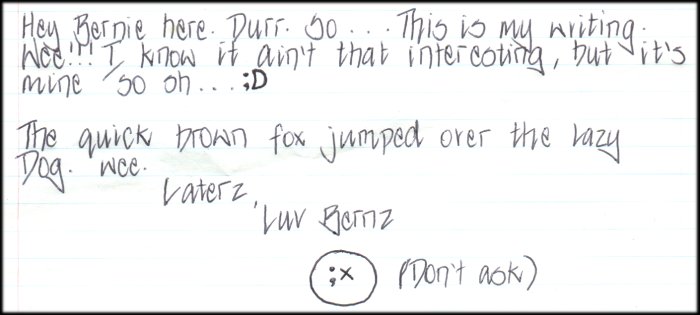 Hey Bernie here. Durr. So . . . This is my writing.
Wee!!! I know it ain't that interesting, but it's
mine so oh . . . ;D
The quick brown fox jumped over the lazy
Dog. wee.
Laterz,
Luv Bernz
;x (Don't ask)